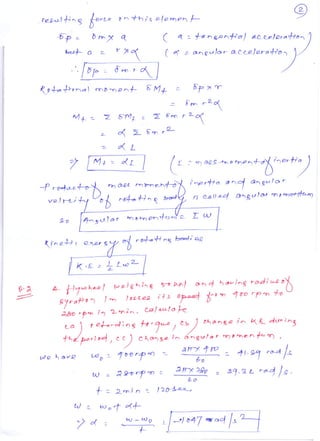 ②
resulting force on this element
δp = δm x a ( a = tangential acceleration
but a = r x α ( α = angular acceleration )
∴ δp = δm r α
Rotational moment δMt = δp x r
= δm r² α
Mt = Σ δMt = Σ δm r² α
= α Σ δm r²
= α I
⇒ Mt = αI ( I = mass moment of inertia )
Product of mass moment of inertia and angular
velocity of rotating body is called angular momentum
So Angular momentum = I ω
Kinetic energy of rotating bodies
K.E = 1/2 I ω²
A flywheel weighing and having radius of
gyration 1m losses its speed from 400 rpm to
280 rpm in 2min. Calculate
(a) retarding torque, (b) change in K.E during
the period, (c) change in angular momentum.
we have ω₀ = 400 rpm = 2π x 400 / 60 = 41.89 rad/s
ω = 280 rpm = 2π x 280 / 60 = rad/s.
t = 2min = 120 sec.
ω = ω₀ + αt
⇒ α = ω - ω₀ / t = rad/s²